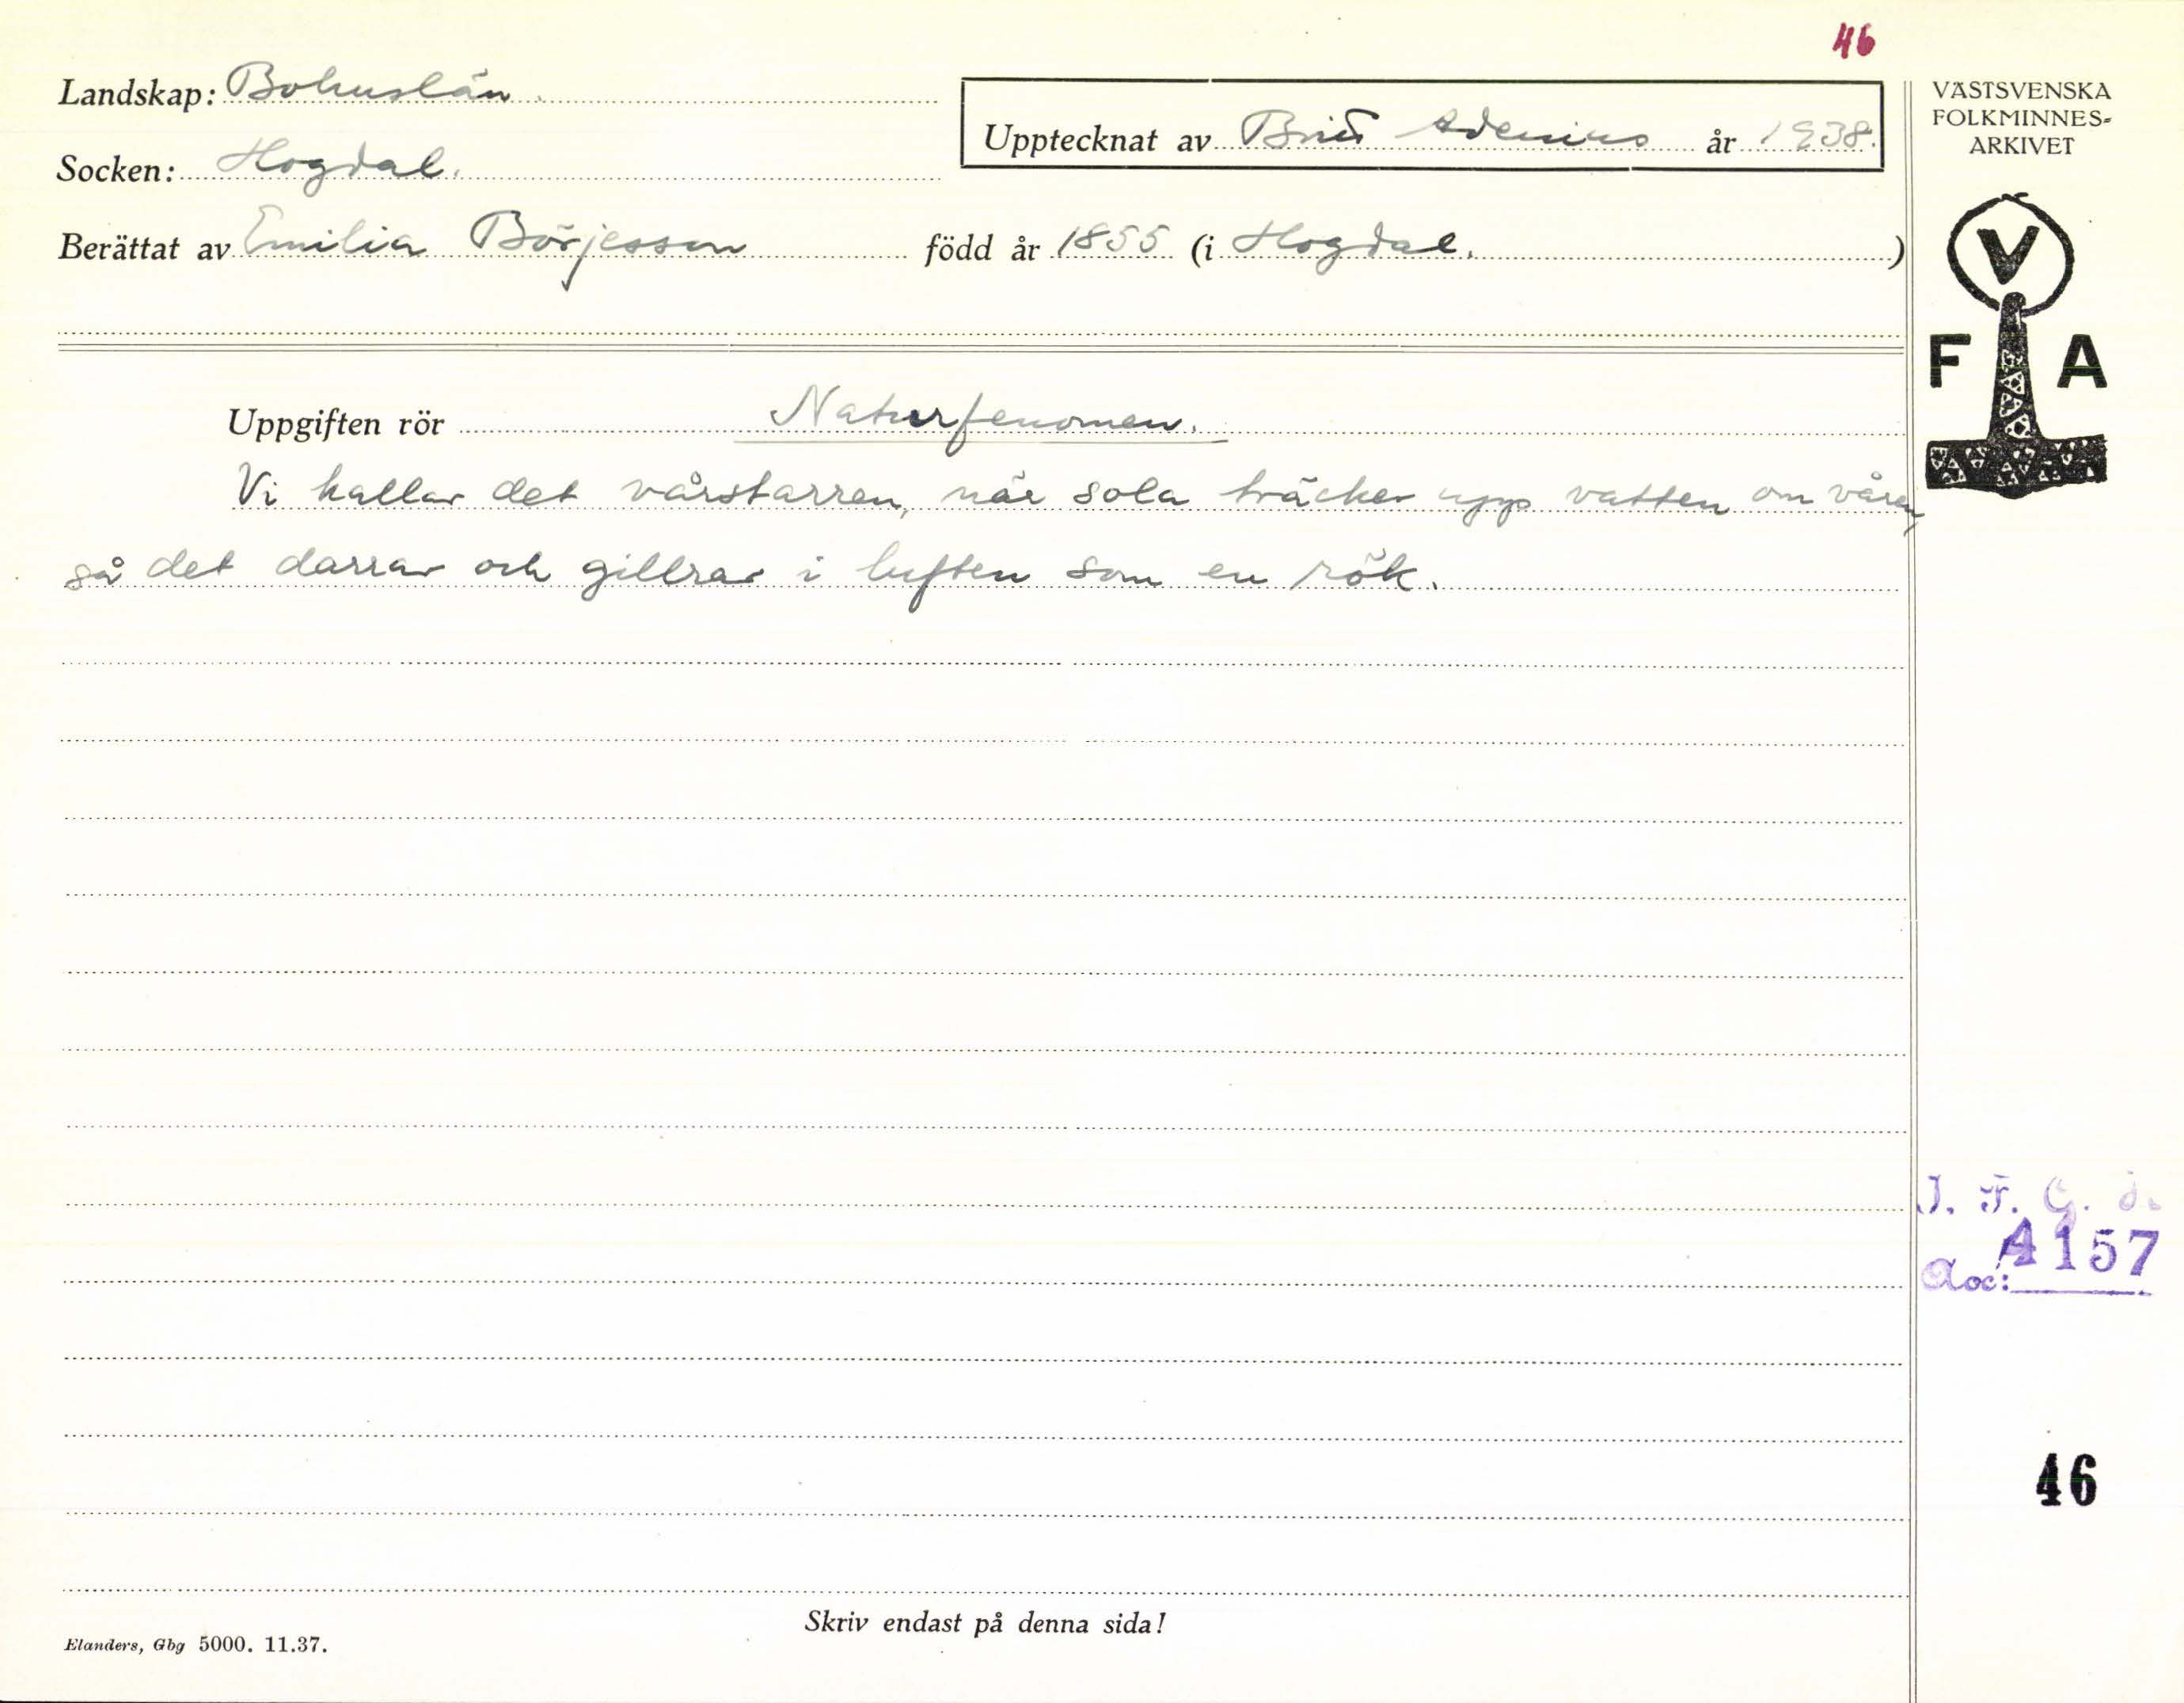 46
Landskap: Bohuslän.
Upptecknat av Brita Adenius år 1938.
Socken: Hogdal.
Berättat av Emilia Börjesson född år 1855 (i Hogdal.)
VÄSTSVENSKA
FOLKMINNES-
ARKIVET
V
F A
Uppgiften rör Naturfenomen.
Vi kallar det vårstarren, när sola träcker upp vatten om våren,
så det darrar och gillrar i luften som en rök.
A 157
Acc:
46
Skriv endast på denna sida!
Elanders, Gbg 5000. 11.37.